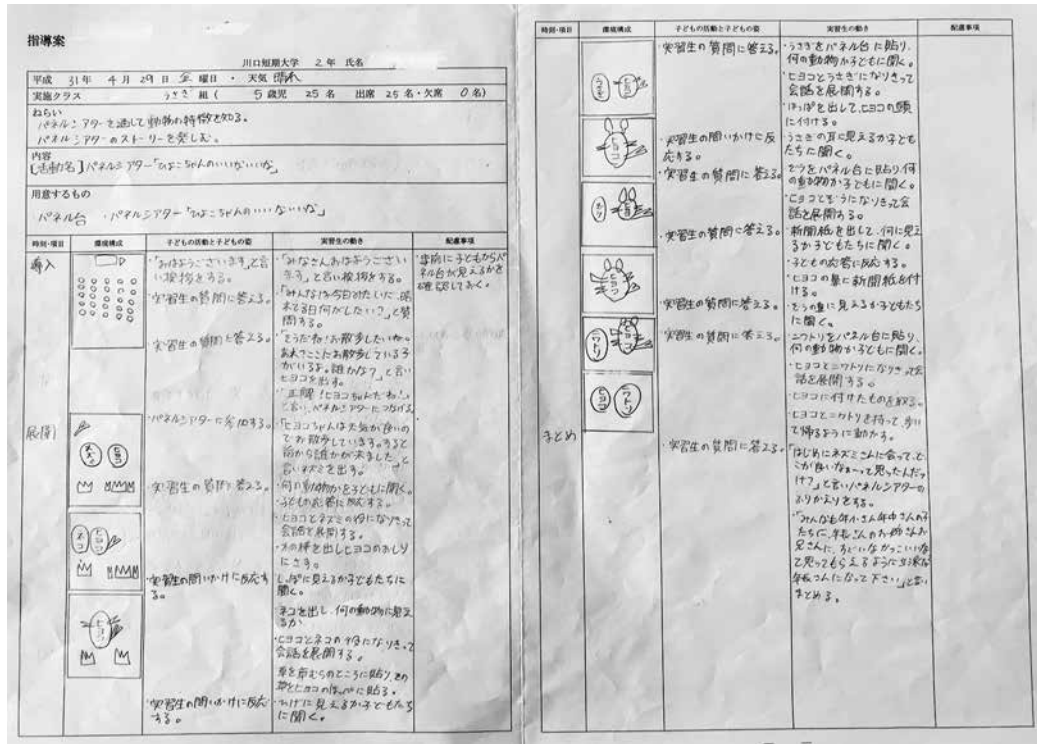 指導案
川口短期大学 2年 氏名
平成 31年 4月 29日 金 曜日 ・ 天気 晴れ
実施クラス うさぎ 組 ( 5歳児 25名 出席 25名・欠席 0名)
ねらい
パネルシアターを通して動物の特徴を知る。
パネルシアターのストーリーを楽しむ。
内容
[活動名]パネルシアター「ひよこちゃんのいいないいな」
用意するもの
・パネル台 ・パネルシアター「ひよこちゃんのいいないいな」
時刻・項目 環境構成 子どもの活動と子どもの姿 実習生の動き 配慮事項
導入
・「おはようございます」と言
い挨拶をする。
・実習生の質問に答える。
・実習生の質問に答える。
・「みなさんおはようござい
ます」と言い挨拶をする。
と質
問する。
「そうだね!お散歩したいね〜
あれ?ここにお散歩している子
がいるよ。誰かな?」と言い
ヒヨコを出す。
・「正解!ヒヨコちゃんだね!」と
言い、パネルシアターにつなげる
・事前に子どもからパ
ネル台が見えるかを
確認しておく。
展開
ネズミ ヒヨコ
ネコ ヒヨコ
ヒヨコ
・パネルシアターに参加する。
・実習生の質問に答える。
・実習生の問いかけに反応す
る。
・実習生の問いかけに反応
する。
・「ヒヨコちゃんは天気が良いの
でお散歩しています。すると
前から誰かが来ました」と
言いネズミを出す。
・何の動物かを子どもに聞く。
・子どもの応答に反応する。
・ヒヨコとネズミの役になりきって
会話を展開する。
棒を出しヒヨコのおしり
にさす。
しっぽに見えるか子どもたちに
聞く。
ネコを出し、何の動物に見え
るか
・ヒヨコとネコの役になりきって
会話を展開する。
草を草むらのところに貼り、その
草をヒヨコのほっぺに貼る。
・ひげに見えるか子どもたち
に聞く。
時刻・項目 環境構成 子どもの活動と子どもの姿 実習生の動き 配慮事項
うさぎ ヒヨコ
ヒヨコ
ゾウ ヒヨコ
ヒヨコ
ニワトリ ヒヨコ
ヒヨコ ニワトリ
・実習生の質問に答える。
・実習生の問いかけに反
応する。
・実習生の質問に答える。
・実習生の質問に答える。
・実習生の質問に答える。
・実習生の質問に答える。
・うさぎをパネル台に貼り、
何の動物か子どもに聞く。
・ヒヨコとうさぎになりきって
会話を展開する。
・はっぱを出して、ヒヨコの頭
に付ける。
・うさぎの耳に見えるか子ども
たちに聞く。
・ぞうをパネル台に貼り、何
の動物か子どもに聞く。
・ヒヨコとぞうになりきって会
話を展開する。
・新聞紙を出して、何に見え
るか子どもたちに聞く。
・子どもの応答に反応する。
・ヒヨコの鼻に新聞紙を付
ける。
・ぞうの鼻に見えるか子どもたち
に聞く。
・ニワトリをパネル台に貼り、
何の動物か子どもに聞く。
・ヒヨコとニワトリになりきって会
話を展開する。
・ヒヨコに付けたものを取る。
・ヒヨコとニワトリを持って、歩い
て帰るように動かす。
まとめ
・実習生の質問に答える。
・「はじめにネズミさんに会って、ど
こが良いなぁ〜って思ったんだっ
け?」と言いパネルシアターの
ふりかえりをする。
・「みんなも年小さん年中さんの子
たちに、年長さんのお姉さんお
兄さんに、すごいなかっこいいな
って思ってもらえるように
年長さんになって下さい」と言い
まとめる。